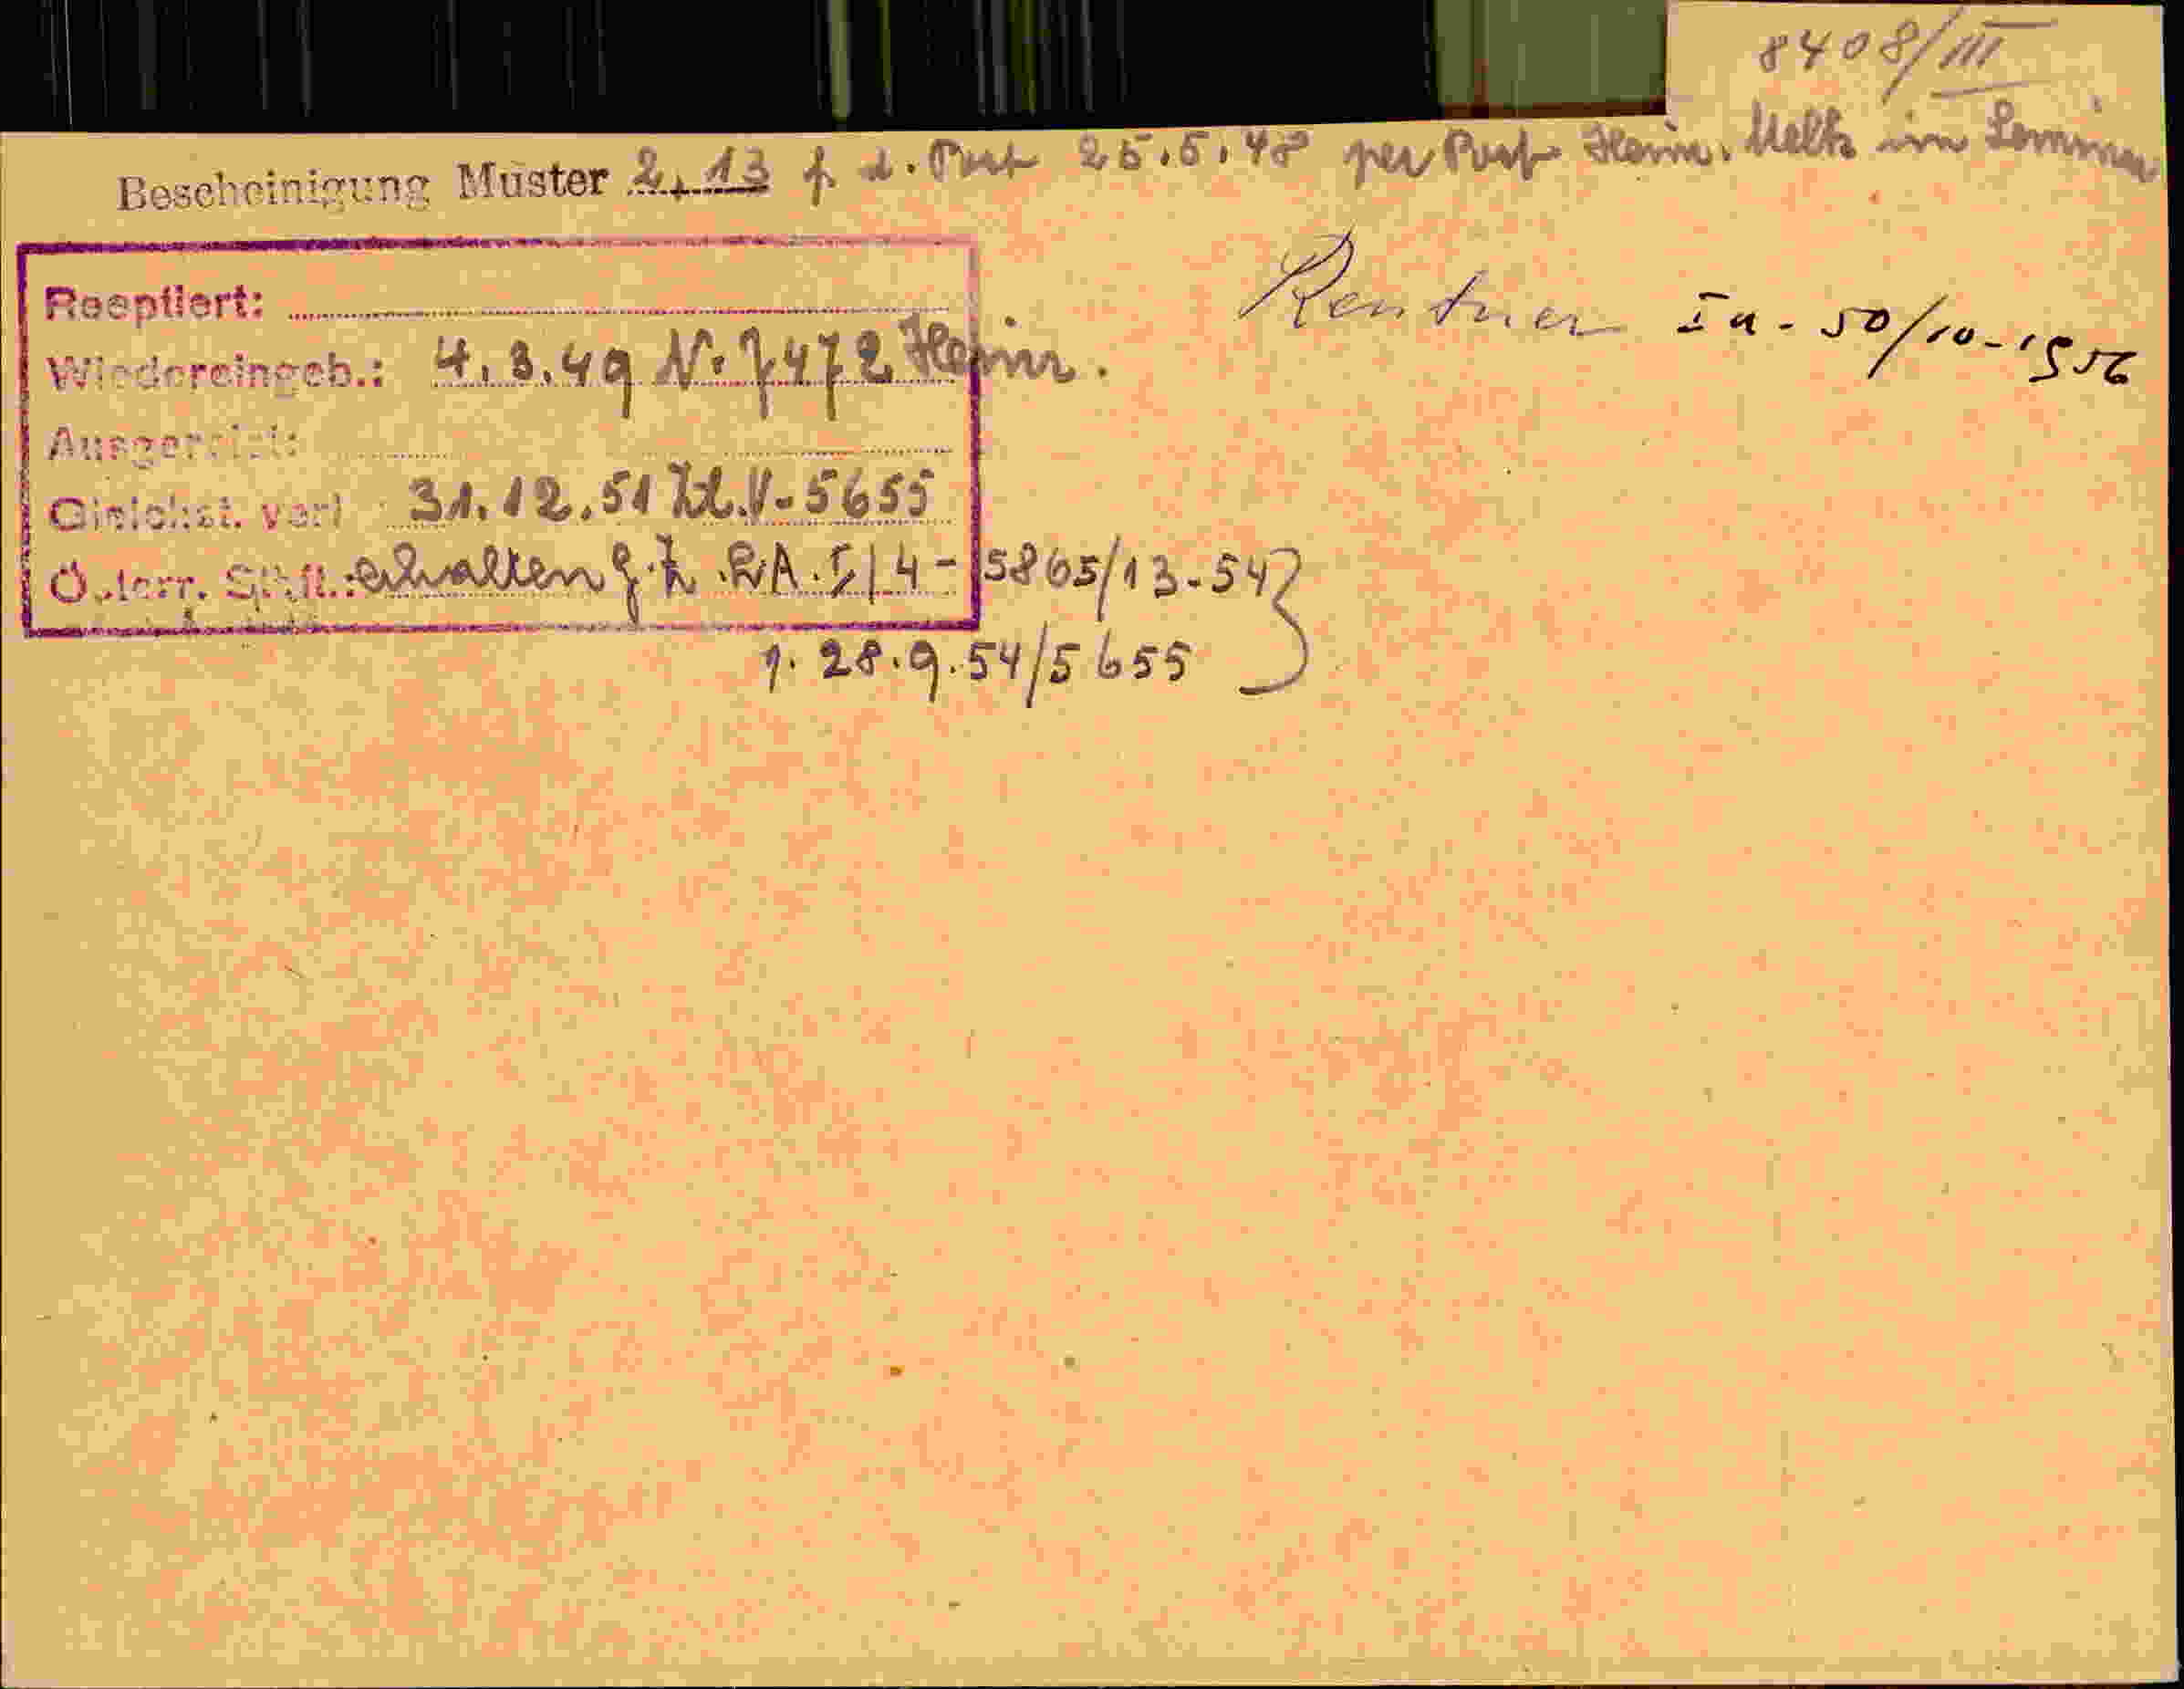 8408/III
Bescheinigung Muster 2, 13 f. d. Post 25.5.48 per Post Heim.
Rentner Ia - 50/10-1956
Reoptiert:
Wiedereingeb.: 4.3.49 N. 7472 Heim.
Ausgereist:
Gleichst. verl 31.12.51 Zl. V. 5655
Österr. Stb.: erhalten g. Z. L.A. I/4 - 5865/13-54
28.9.54/5655